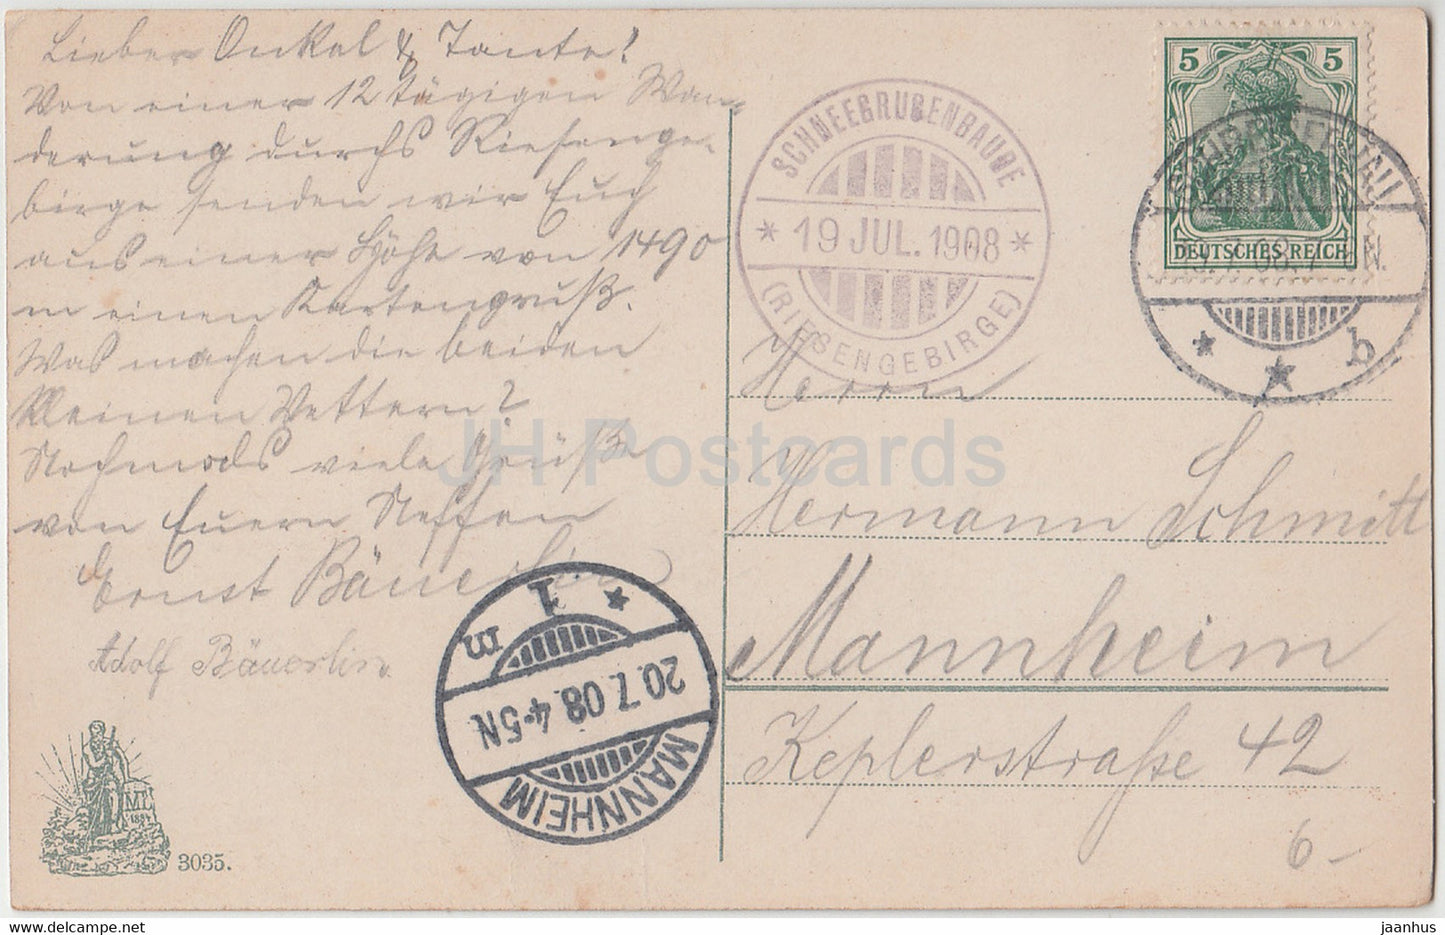 Lieber Onkel & Tante!
Von einer 12 tägigen Wan-
derung durchs Riesenge-
birge senden wir Euch
aus einer Höhe von 1490
m einen Kartengruß.
Was machen die beiden
kleinen Vettern?
Nochmals viele Grüße
von Euern Neffen
Ernst Bäuerlin
Adolf Bäuerlin.
ML
1884
3035.
SCHNEEGRUBENBAUDE
* 19 JUL. 1908 *
(RIESENGEBIRGE)
5 5
DEUTSCHES REICH
* * b
Herrn
Hermann Schmitt
Mannheim
Keplerstraße 42
6-
MANNHEIM
20.7.08.4-5N
* 1 m
JH Postcards
jaanhus